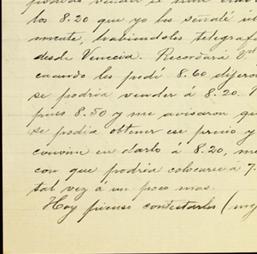 podría vender
los 8.20 que yo les señalé
mente, habiendoles telegraf
desde Venecia. Recordará V
cuando les pedí 8.60 dijeron
se podría vender á 8.20.
pues 8.50 y me avisaron qu
se podía obtener ese precio y
convine en darlo á 8.20, me
con que podría colocarse á 7.
tal vez á un poco mas.
Hoy pienso contestarles (